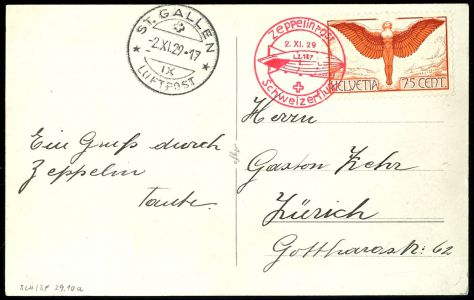 ST. GALLEN
-2.XI.29-17
IX
LUFTPOST
Zeppelinpost
2. XI. 29
LZ.127
Schweizerflug
HELVETIA 75 CENT.
Ein Gruß durch
Zeppelin
Taube.
Herrn
Gaston Kehr
Zürich
Gotthardstr. 62
SCH/SF 29.10a